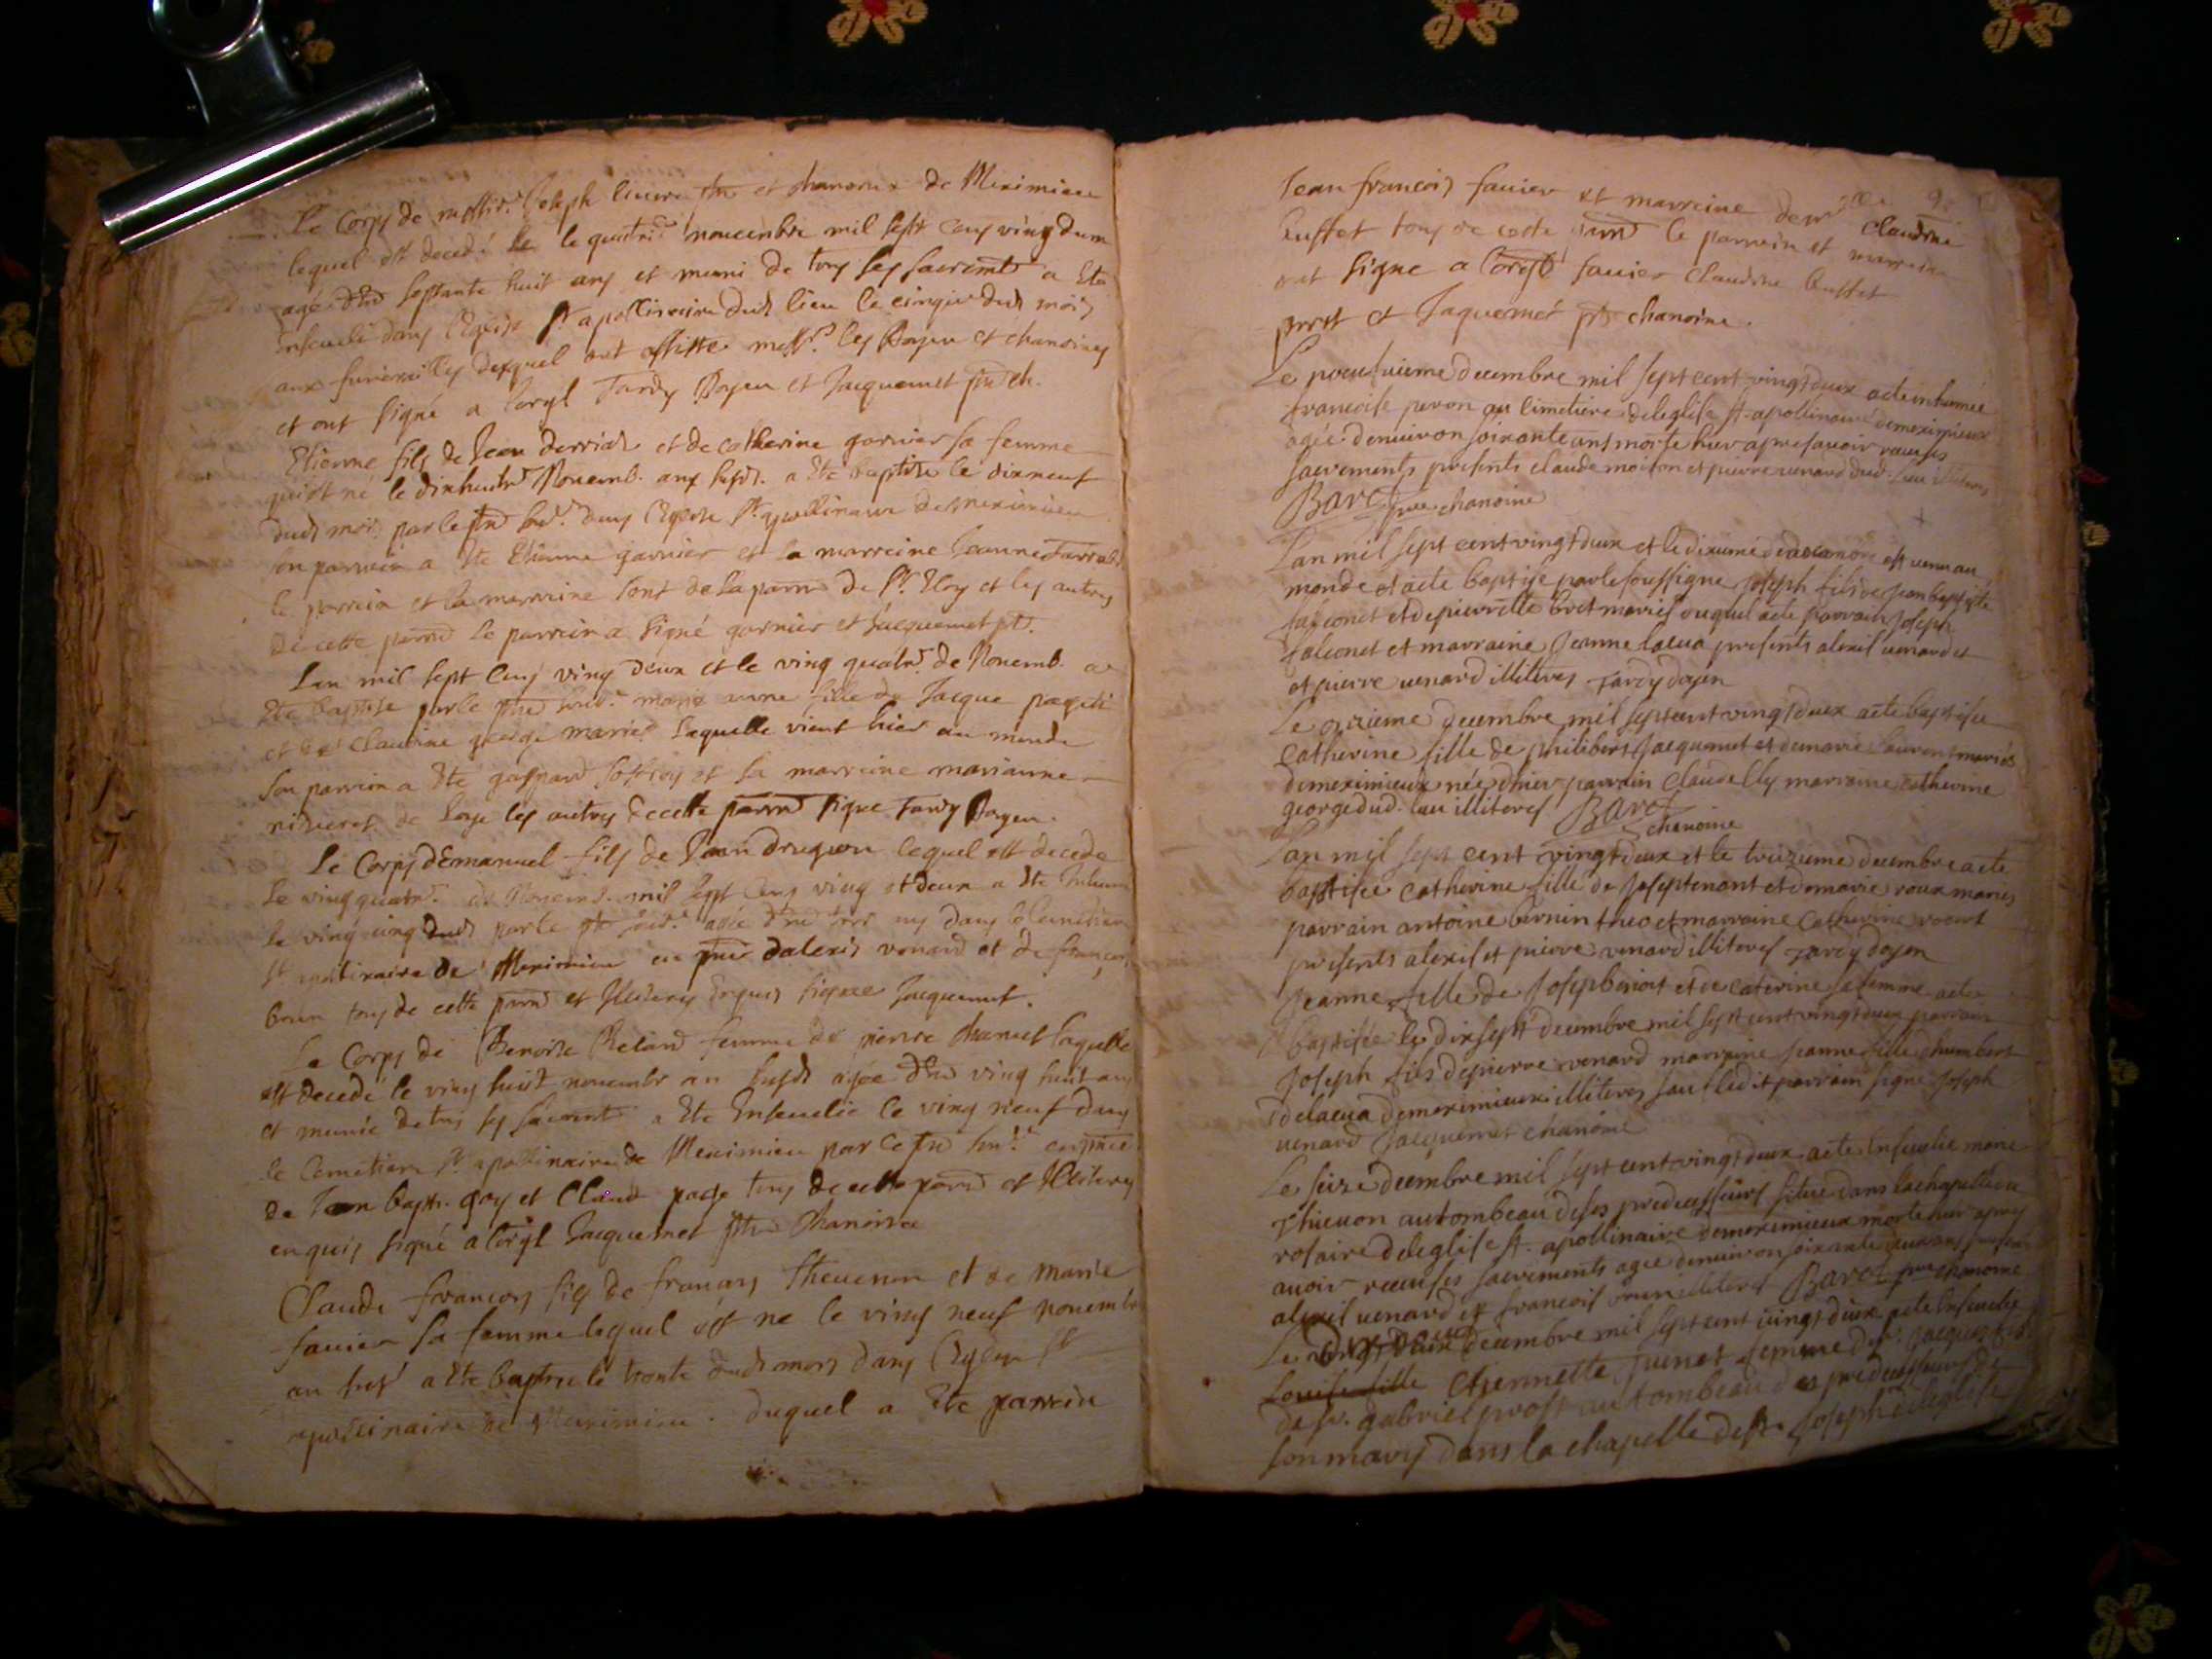 Le Corps de messire Joseph et chanoine de Meximieu
lequel est decedé le le quatrie novembre mil sept cens ving deux
agé d'env septante huit ans et muni de tous ses sacremts a Ete
Enseveli dans l'Eglise St apollinaire dud lieu le cinqie dud mois
aux funerailles desquel ont assisté messrs les Doyen et chanoines
et ont signé a l'orgl Tardy Doyen et Jacquemet ptre ch.
Etienne fils de Jean derriad et de catherine garnier sa femme
qui est né le dixhuitie Novemb. an susd. a Ete baptise le dixneuf
dud mois par le ptre sous. dans l'Eglise St apollinaire de meximieu
son parrein a Ete Etienne garnier et la marreine Jeanne
le parrein et la marreine sont de la parr de St Eloy et les autres
de cette parr le parrein a signé garnier et Jacquemet pt.
Lan mil sept cens ving deux et le ving quatre de Novemb. a
Ete baptisé par le sous. marie fille de Jacque
et de Claudine george mariés laquelle vient hier au monde
son parrein a Ete gaspard et sa marreine marianne
de les autres de cette parr signe Tardy Doyen.
Le Corps d'Emanuel fils de Jean drugeon lequel est decede
le ving quatre de Novemb. mil sept cens ving et deux a Ete Inhumé
le ving cinq dud par le sous. agé d'env ans dans le cemetiere
St apolinaire de Meximieu en d'alexis venard et de françois
brun tous de cette parr et Illiteres Enquis signee Jacquemet.
Le Corps de Benoite femme de pierre laquelle
est decedé le ving huit novembr an susd agée d'env ving huit ans
et munie de tous ses sacremts a Ete Ensevelie le ving neuf dans
le Cemetiere St apollinaire de Meximieu par le sous. en
de Jean bapt. goy et Claude page tous de cette parr et Illiteres
enquis signé a l'orgl Jacquemet ptre Chanoine
Claude françois fils de françois Thevenon et de marie
favier sa femme lequel est né le ving neuf novemb
an sus a Ete baptise le trente dud mois dans l'Eglise St
apollinaire de Meximieu. duquel a Ete parrein
Jean françois favier et marreine demlle Claudine
buffet tous de cette parr le parrein et marreine
ont signe a l'orgl favier Claudine buffet
prost et Jaquemet ptre chanoine.
Le neufvieme decembre mil sept cent vingt deux a ete inhumée
francoise peron au cimetiere de leglise st apollinaire de meximieux
agée denviron soixante ans morte hier apres avoir receu ses
sacrements presents claude moiton et pierre venard dud. lieu illiteres
Baret ptre chanoine
Lan mil sept cent vingt deux et le dixieme est venu au
monde et a ete baptise par le soussigne Joseph fils de Jean baptiste
falconet et de pierrette bret mariés duquel a ete parrain Joseph
falconet et marraine Jeanne lacua presents alexis venard et
et pierre venard illiteres Tardy doyen
Le onzieme decembre mil sept cent vingt deux a ete baptisee
catherine fille de philibert Jacquemet et de marie mariés
de meximieux née dhier parrain claude lly marraine catherine
george dud. lieu illiteres Baret
chanoine
Lan mil sept cent vingt deux et le treizieme decembre a ete
baptisée catherine fille de Joseph tenant et de marie roux mariés
parrain antoine bernin et marraine Catherine
presents alexis et pierre venard illiteres Tardy doyen
Jeanne fille de Joseph benoit et de caterine sa femme a ete
baptisée le dixsept decembre mil sept cent vingt deux parrain
Joseph fils de pierre venard marraine Jeanne fille dhumbert
delacua de meximieux illiteres sauf ledit parrain signe Joseph
venard Jacquemet chanoine
Le seize decembre mil sept cent vingt deux a ete Ensevelie marie
Thievon au tombeau de ses predecesseurs situe dans la chapelle du
rosaire de leglise st. apollinaire de meximieux morte hier apres
avoir receu ses sacrements agee denviron soixante deux ans presents
alexis venard et francois brun illiteres Baret ptre chanoine
Le decembre mil sept cent vingt deux a ete Ensevelie
Louise fille Etiennette femme de sr. Jacques
de sr. gabriel prost au tombeau des predecesseurs de
son mary dans la chapelle de st. Joseph de leglise